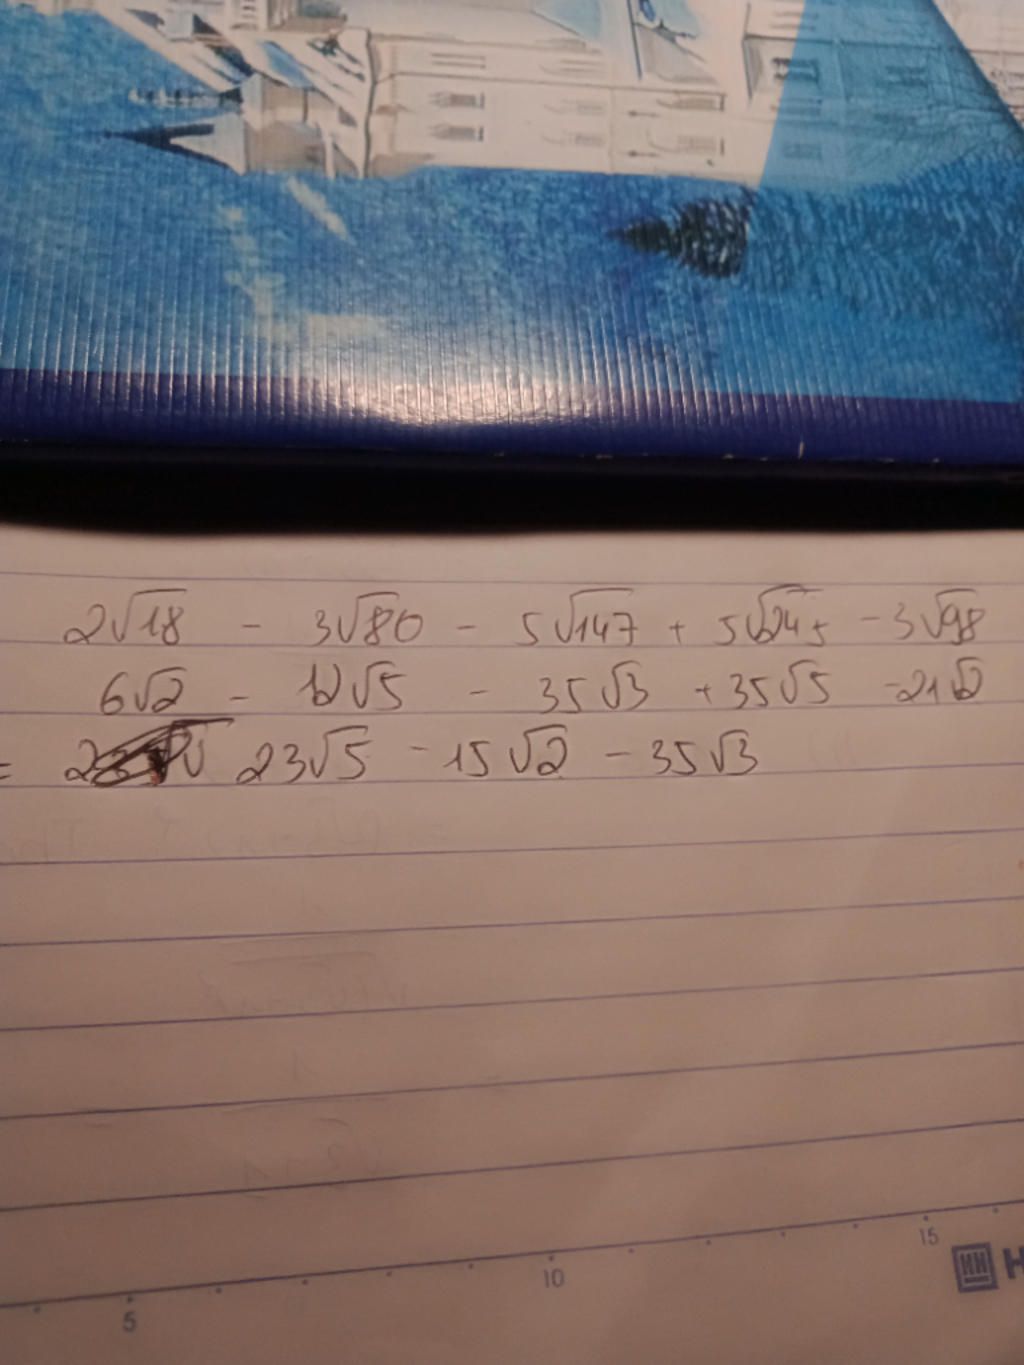 2√18 - 3√80 - 5√147 + 5√245 - 3√98
6√2 - 12√5 - 35√3 + 35√5 - 21√2
= 23√5 - 15√2 - 35√3
5 10 15
H